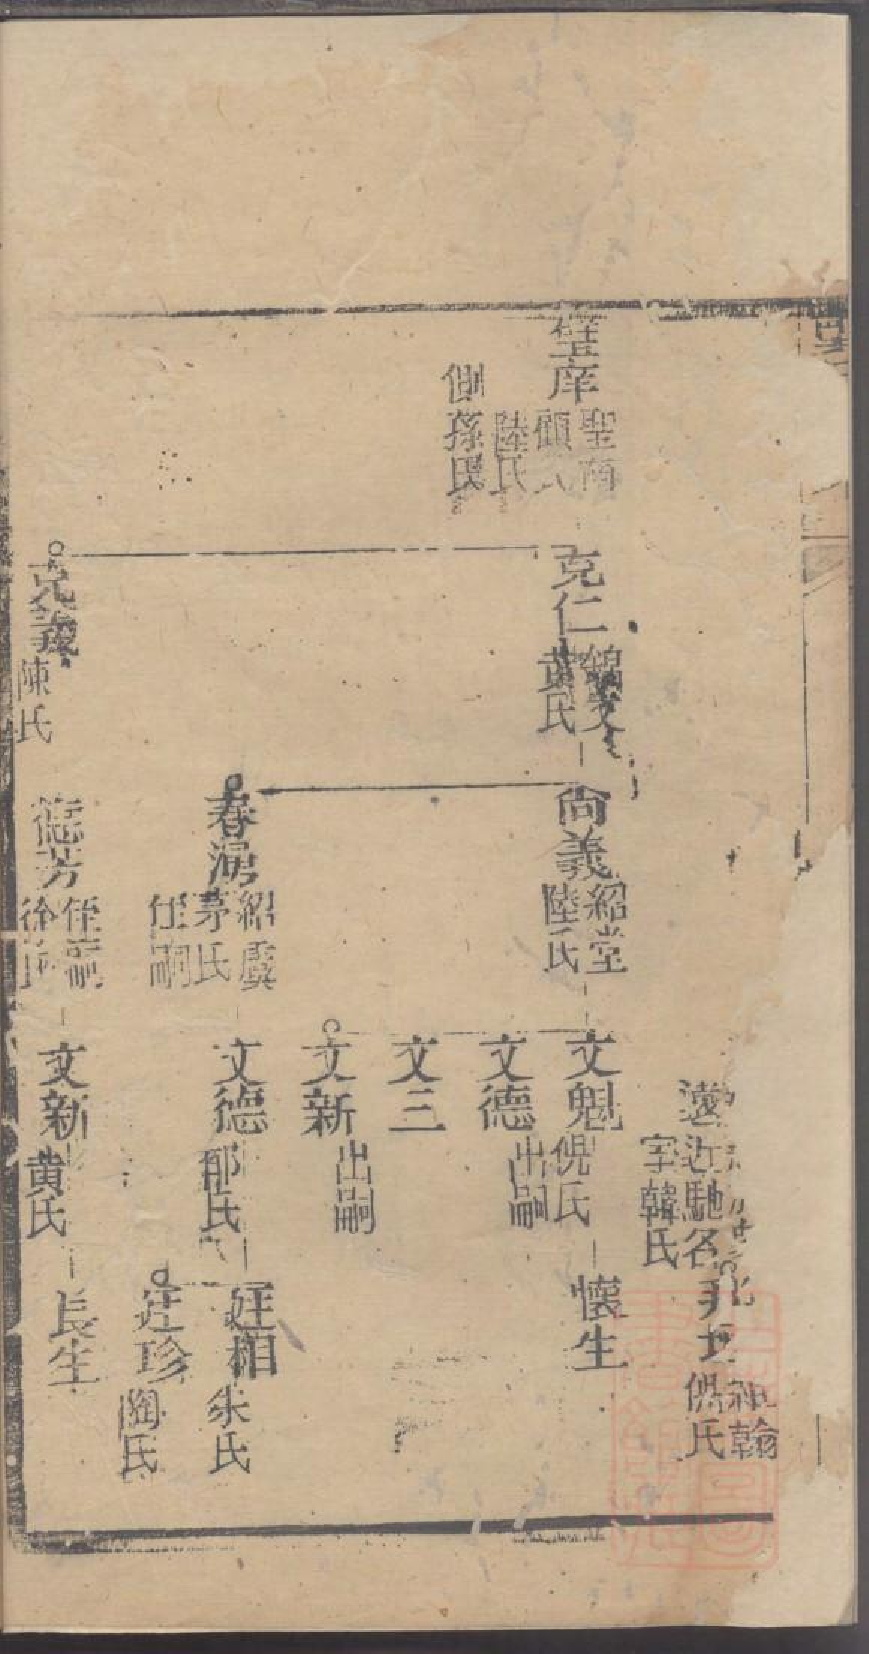 聖南
顧氏
陸氏
側孫氏
克仁
錦文
黃氏
克義
陳氏
尚義
紹堂
陸氏
春湧
紹虞
茅氏
任嗣
德芳
侄嗣
徐氏
文魁
倪氏
文德
出嗣
文三
文新
出嗣
文德
郁氏
文新
黃氏
馳名
字韓氏
翰
氏
懷生
廷相
朱氏
廷珍
陶氏
長生